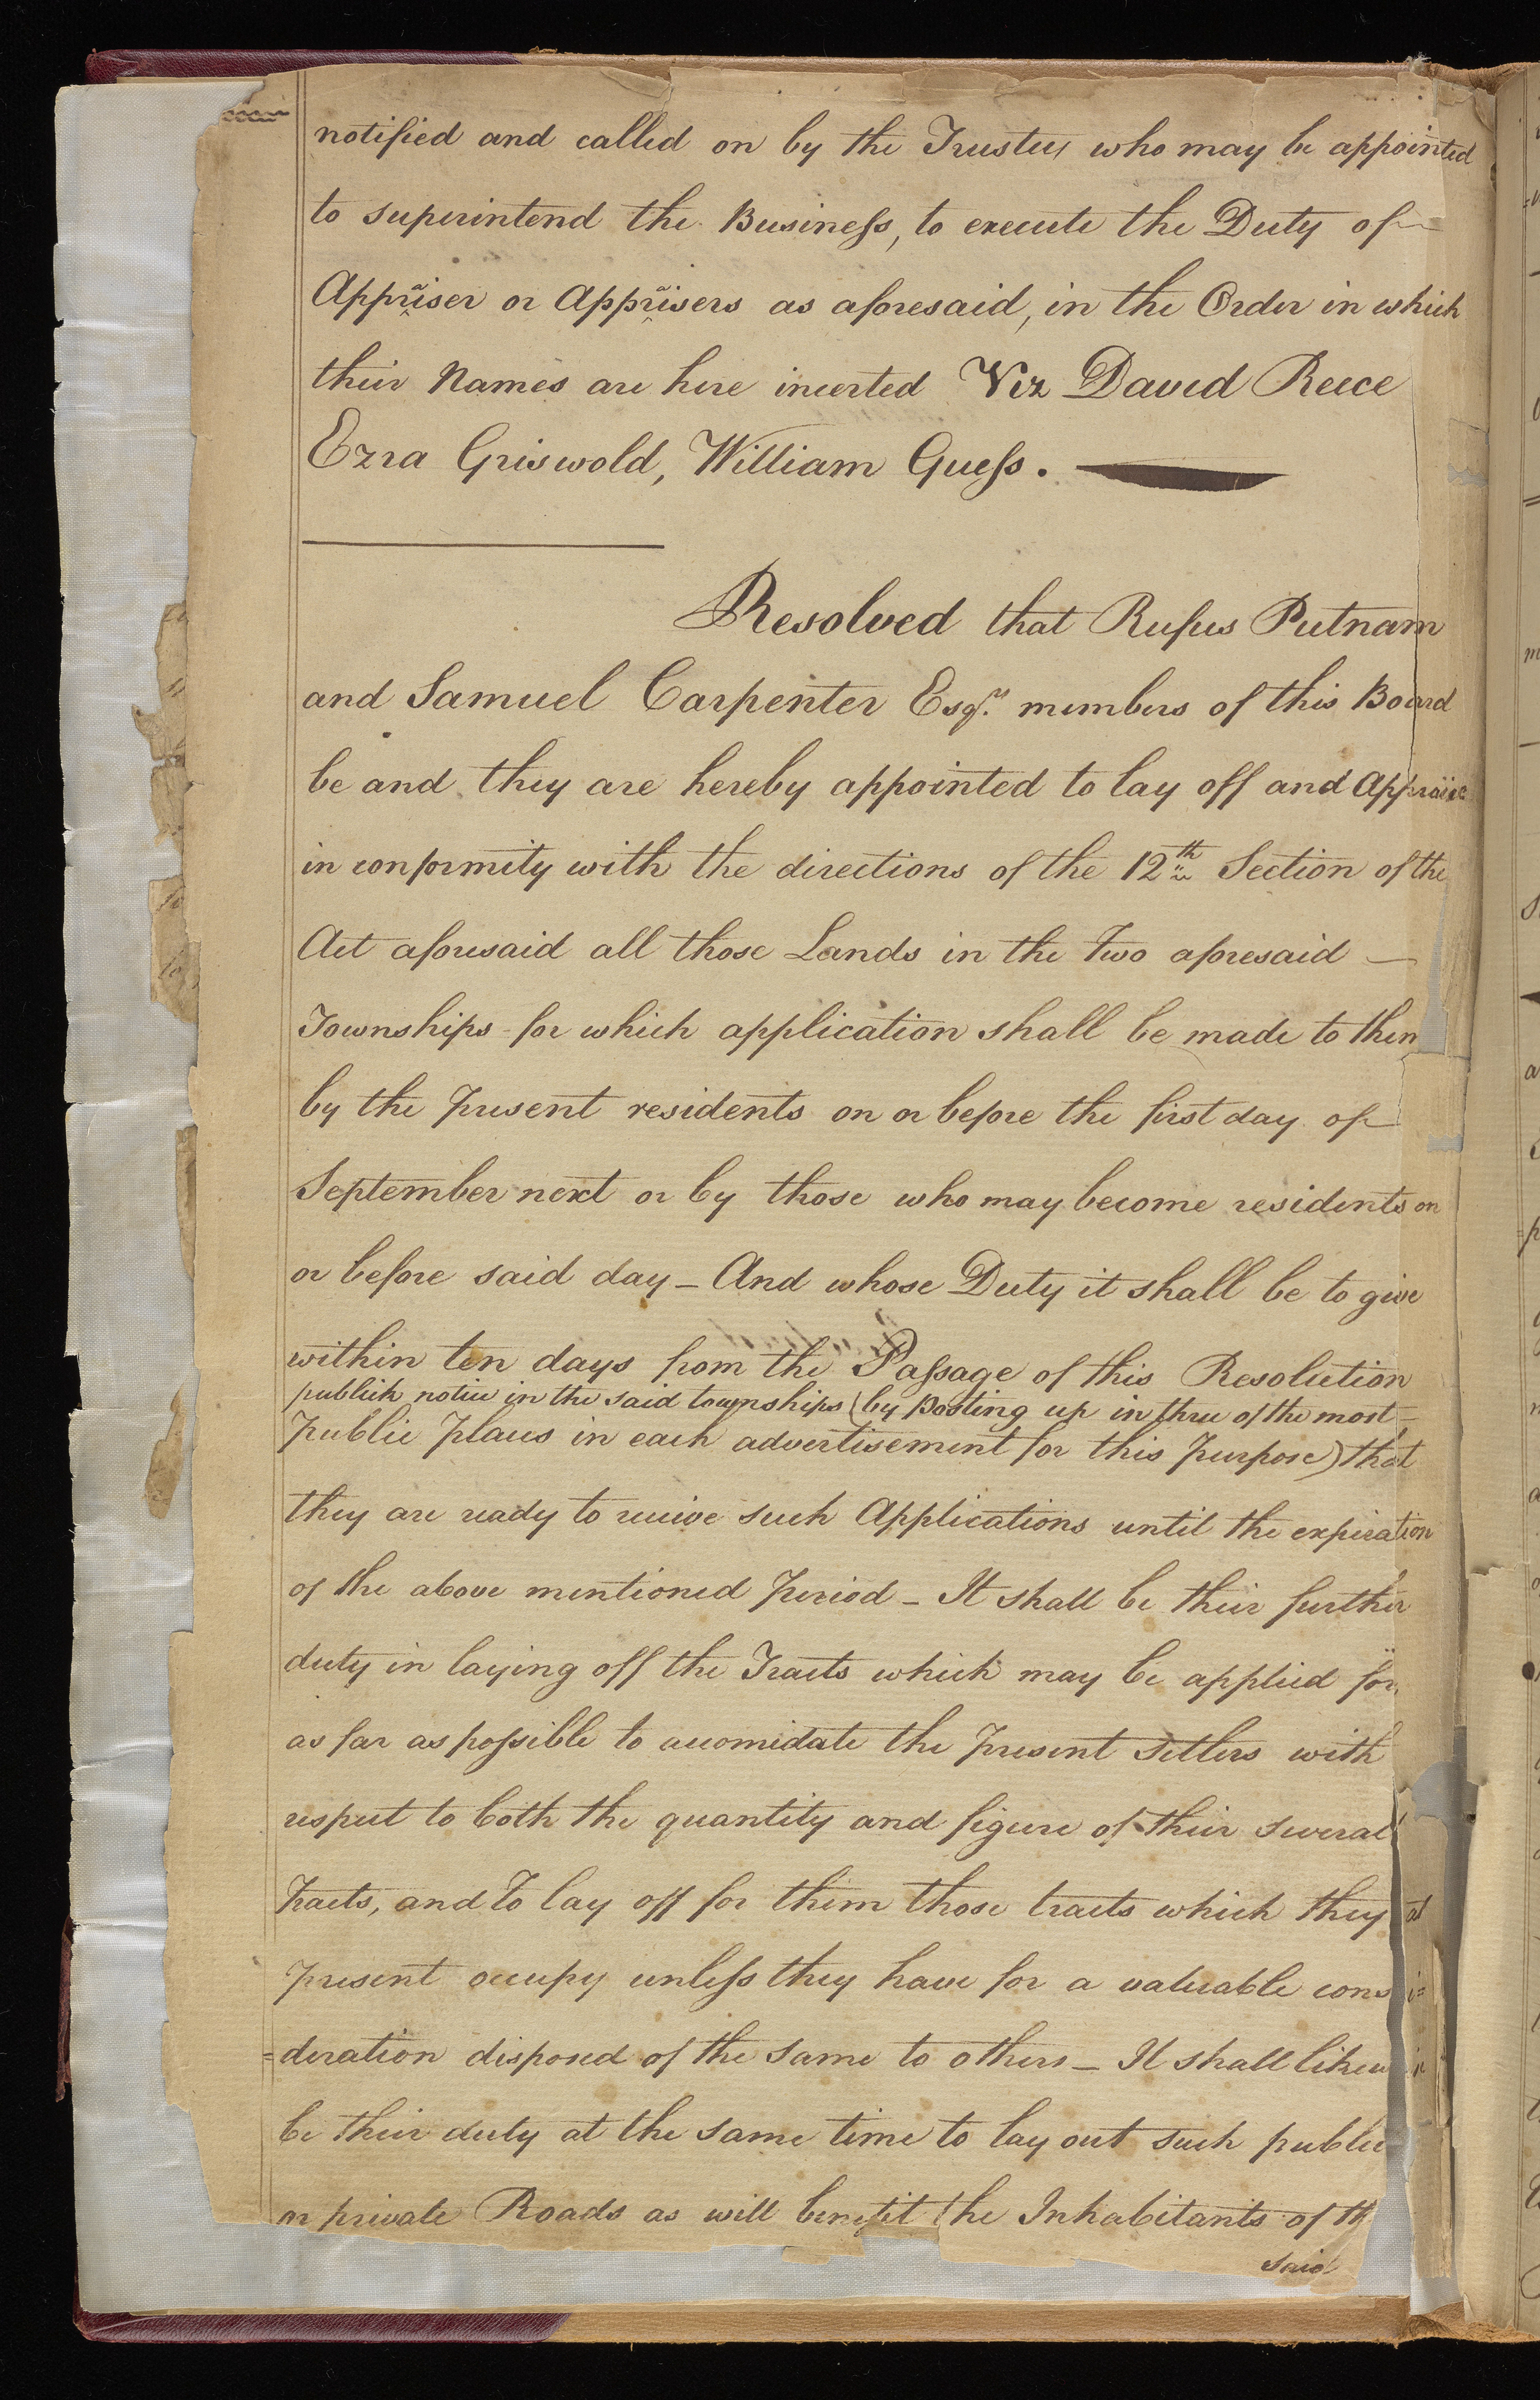 notified and called on by the Trustees who may be appointed
to superintend the Business, to execute the Duty of
Appraiser or Appraisers as aforesaid, in the Order in which
their Names are here incerted Viz David Reece
Ezra Griswold, William Guess.
Resolved that Rufus Putnam
and Samuel Carpenter Esqrs. members of this Board
be and they are hereby appointed to lay off and Appraise
in conformity with the directions of the 12th Section of the
Act aforesaid all those Lands in the Two aforesaid —
Townships for which application shall be made to them
by the Present residents on or before the first day of
September next or by those who may become residents on
or before said day – And whose Duty it shall be to give
within ten days from the Passage of this Resolution
publick notice in the said townships (by Posting up in three of the most
Public Places in each advertisement for this Purpose) that
they are ready to receive such Applications until the expiration
of the above mentioned Period – It shall be their further
duty in laying off the Tracts which may be applied for,
as far as possible to accomidate the Present Setlers with
respect to both the quantity and figure of their several
Tracts, and To lay off for them those tracts which they at
Present occupy unless they have for a valuable consi=
=deration disposed of the same to others – It shall
be their duty at the same time to lay out such public
or private Roads as will benefit the Inhabitants of th
said